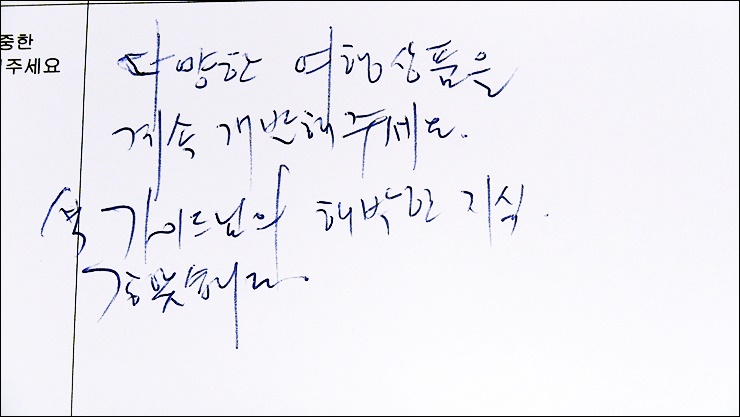 중한
주세요
다양한 여행상품을
계속 개발해주세요.
가이드님의 해박한 지식.